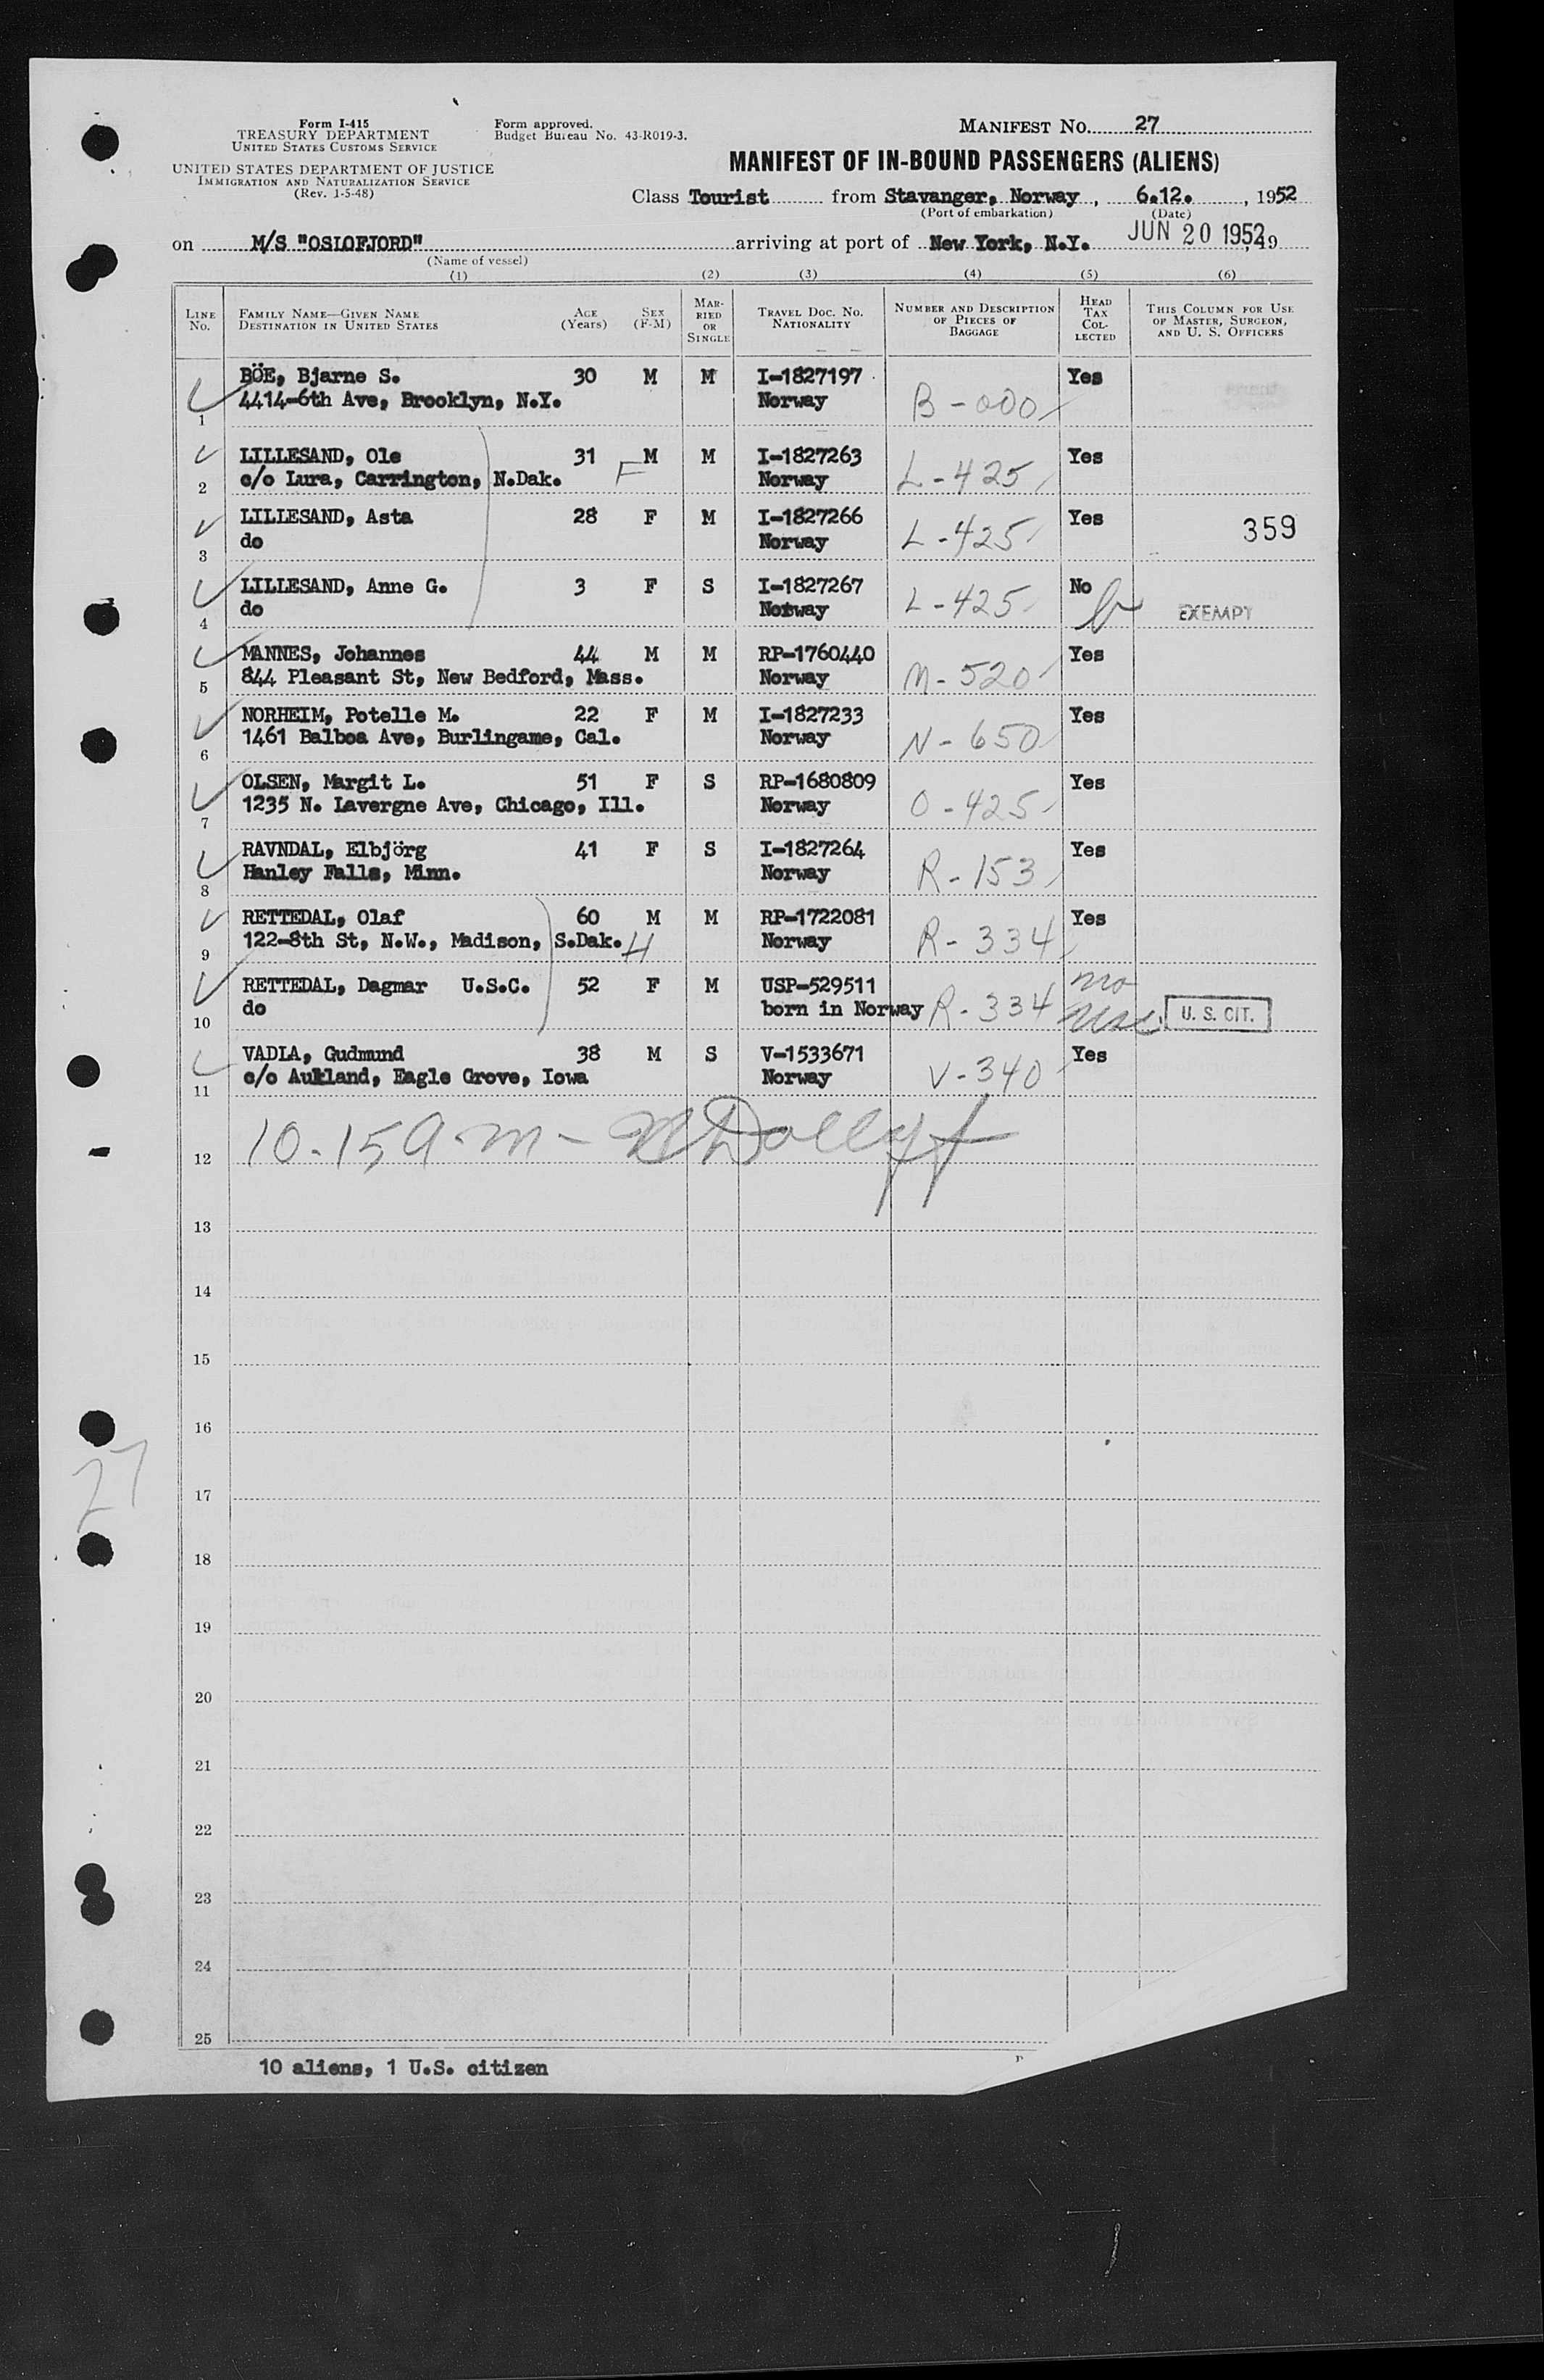 Form I-415
TREASURY DEPARTMENT
UNITED STATES CUSTOMS SERVICE
UNITED STATES DEPARTMENT OF JUSTICE
IMMIGRATION AND NATURALIZATION SERVICE
(Rev. 1-5-48)
Form approved.
Budget Bureau No. 43-R019-3.
MANIFEST No. 27
MANIFEST OF IN-BOUND PASSENGERS (ALIENS)
Class Tourist from Stavanger, Norway, 6.12., 1952
(Port of embarkation) (Date)
on M/S "OSLOFJORD" arriving at port of New York, N.Y. JUN 20 1952, 19
(Name of vessel)
(1) (2) (3) (4) (5) (6)
LINE No. FAMILY NAME—GIVEN NAME DESTINATION IN UNITED STATES AGE (Years) SEX (F-M) MARRIED OR SINGLE TRAVEL DOC. NO. NATIONALITY NUMBER AND DESCRIPTION OF PIECES OF BAGGAGE HEAD TAX COLLECTED THIS COLUMN FOR USE OF MASTER, SURGEON, AND U. S. OFFICERS
BÖE, Bjarne S. 30 M M I-1827197 Yes
1 4414-6th Ave, Brooklyn, N.Y. Norway B-000
LILLESAND, Ole 31 M M I-1827263 Yes
2 c/o Lura, Carrington, N.Dak. F Norway L-425
LILLESAND, Asta 28 F M I-1827266 Yes 359
3 do Norway L-425
LILLESAND, Anne G. 3 F S I-1827267 No
4 do Norway L-425 EXEMPT
MANNES, Johannes 44 M M RP-1760440 Yes
5 844 Pleasant St, New Bedford, Mass. Norway M-520
NORHEIM, Potelle M. 22 F M I-1827233 Yes
6 1461 Balboa Ave, Burlingame, Cal. Norway N-650
OLSEN, Margit L. 51 F S RP-1680809 Yes
7 1235 N. Lavergne Ave, Chicago, Ill. Norway O-425
RAVNDAL, Elbjörg 41 F S I-1827264 Yes
8 Hanley Falls, Minn. Norway R-153
RETTEDAL, Olaf 60 M M RP-1722081 Yes
9 122-8th St, N.W., Madison, S.Dak. H Norway R-334
RETTEDAL, Dagmar U.S.C. 52 F M USP-529511 no
10 do born in Norway R-334 U. S. CIT.
VADLA, Gudmund 38 M S V-1533671 Yes
11 c/o Aukland, Eagle Grove, Iowa Norway V-340
12 10.15 A.M-
13
14
15
16
17
18
19
20
21
22
23
24
25
27
10 aliens, 1 U.S. citizen